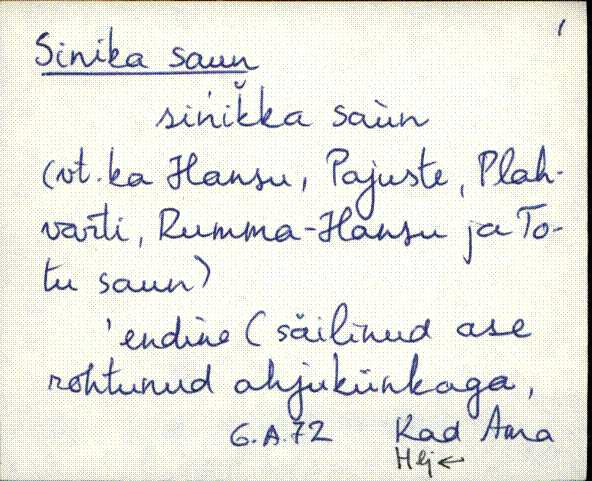 1
Sinika saun
sinik̆ka saùn
(vt. ka Hansu, Pajuste, Plah-
varti, Rumma-Hansu ja To-
tu saun)
'endine (säilinud ase
rohtunud ahjukünkaga,
G.A.72 Kad Ama
Hlj←